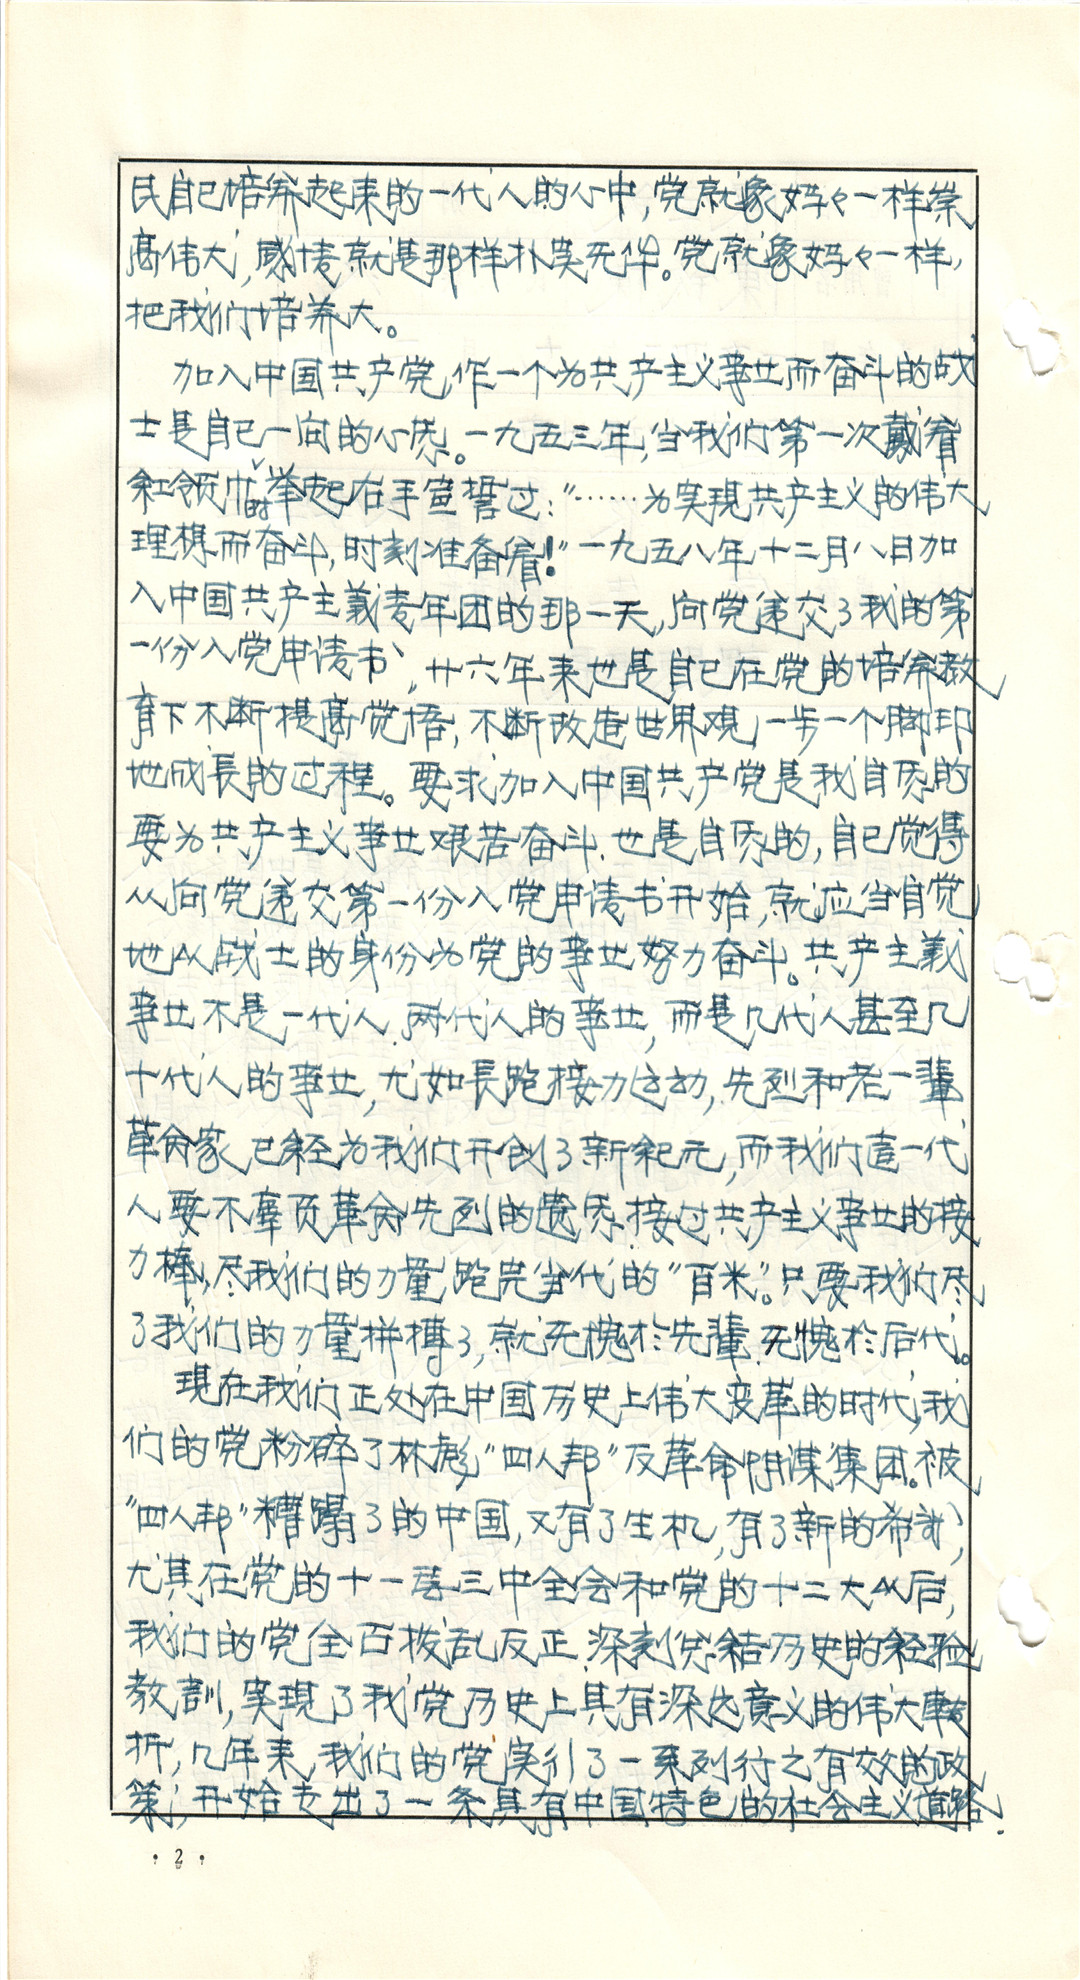 民自己培养起来的一代人的心中,党就象妈々一样崇
高伟大,感情就是那样朴实无华。党就象妈々一样,
把我们培养大。
加入中国共产党,作一个为共产主义事业而奋斗的战
士是自己一向的心愿。一九五三年,当我们第一次戴着
红领巾时举起右手宣誓过:“……为实現共产主义的伟大
理想而奋斗,时刻准备着!”一九五八年十二月八日加
入中国共产主義青年团的那一天,向党递交了我的第
一份入党申请书,廿六年来也是自己在党的培养教
育下不断提高觉悟,不断改造世界观,一步一个脚印
地成長的过程。要求加入中国共产党是我自愿的
要为共产主义事业艰苦奋斗.也是自愿的,自己觉得
从向党递交第一份入党申请书开始,就应当自觉
地从战士的身份为党的事业努力奋斗。共产主義
事业不是一代人.两代人的事业,而是几代人甚至几
十代人的事业,尤如長跑接力运动,先烈和老一輩
革命家已经为我们开创了新紀元,而我们這一代
人要不辜负革命先烈的遗愿.接过共产主义事业的接
力棒,尽我们的力量,跑完当代的“百米”。只要我们尽
了我们的力量拼搏了,就无愧於先輩.无愧於后代。
現在我们正处在中国历史上伟大变革的时代,我
们的党粉碎了林彪“四人邦”反革命阴谋集团。被
“四人邦”糟蹋了的中国,又有了生机,有了新的希望,
尤其在党的十一届三中全会和党的十二大以后,
我们的党全百拨乱反正.深刻总结历史的经验
教訓,实現了我党历史上具有深远意义的伟大轉
折,几年来,我们的党实行了一系列行之有效的政
策;开始走出了一条具有中国特色的社会主义道路.
·2·